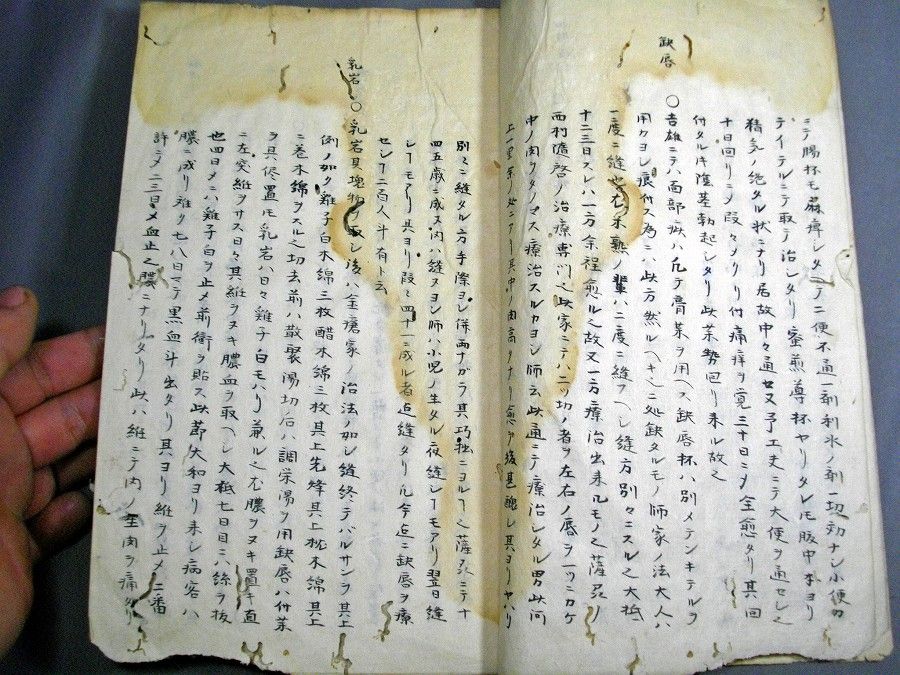 缺唇
ニテ腸杯モ麻痺シタルニテ二便不通一剤利水ノ剤一切効ナシ小便ハ
テイテルニテ取テ治シタリ蜜煎導杯ヤリタレ𪜈腹中本ヨリ
精気ノ絶タル状ニナリ居故中々通セス又予工夫ニテ大便ヲ通セシ
十日回リニメ段々ノリ付痛痒ヲ覚三十日ニメ全愈タリ其回
付タル陰茎勃起シタリ此茶勢回リ来ル故
〇吉雄ニテハ面部状ハ凡テ膏薬ヲ用ヘス缺唇杯ハ別メテンキテルヲ
用タヨシ痕付ス為ニハ此方然ルヘキ処缺タルモノ師家ノ法大人ハ
一度ニ縫也右未熟ノ輩ハ二度ニ縫フヘシ縫方別々ニスル之大抵
十二三日スレハ一方余程愈ル之故又一方療治出来ル
西村随啓ノ治療専門之此家ニテハ二ツ切ノ者ヲ左右ノ唇ヲ一ツニカケ
中ノ肉ヲタノマス療治スルカヨシ師云此通ニテ療治シタル男此河
上一里余ノ処ニアリ其中リ肉高クナリ愈テ後甚醜シ其ヨリヤハリ
別々ニ縫タル方手際ヨシ併両ナガラ其巧拙ニヨル
四五歳ニ成ス内ハ縫ヌヨシ師ハ小児ノ生タル夜縫シ𪜈アリ翌日縫
シ𪜈アリ其ヨリ段々四十ニ成ル者迄縫タリ凡今迄ニ缺唇ヲ療
セシ二百人斗有ト云
乳岩
〇乳岩其塊物ヲ取シ後ハ金瘡家ノ治法ノ如シ縫終テバルサンヲ其上
例ノ如ク鶏子白木綿三枚醋木綿三枚其上先烽其上枕木綿其上
ニ巻木綿ヲスル之切去前ハ散聚湯切后ハ調栄湯ヲ用缺唇ハ付薬
ヲ其侭置𪜈乳岩ハ日々鶏子白𪜈ハリ兼ル之尤膿ヲヌキ置キ直
ニ左突維ヲサス日々其維ヲヌキ膿血ヲ取ヘシ大抵七日目ニハ絲ヲ抜
也四日メニハ鶏子白ヲ止メ前衛ヲ貼ス此節失和ヨリ来シ病客ハ
膿ニ成リ难ク七八日マテ黒血斗出タリ其ヨリ維ヲ止メ二番
許ニメ二三日メ血止之膿ニナリタリ此ハ維ニテ内ノ生肉ヲ痛